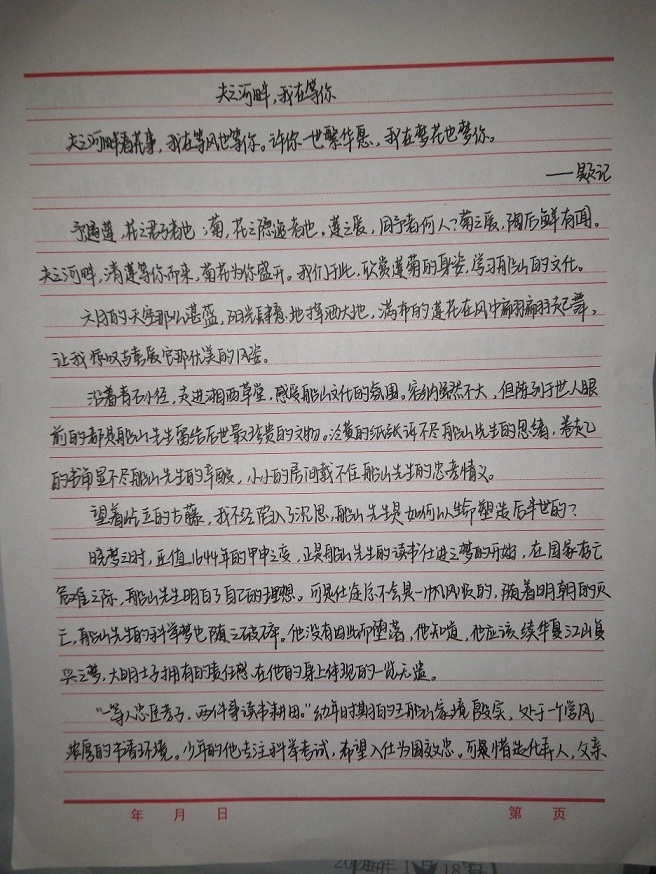 夫之河畔，我在等你
夫之河畔看花事，我在等风也等你。许你一世繁华愿，我在梦花也梦你。
——题记
予谓莲，花之君子者也；菊，花之隐逸者也。莲之爱，同予者何人？菊之爱，陶后鲜有闻。
夫之河畔，清莲等你而来，菊花为你盛开。我们于此，欣赏莲菊的身姿，学习船山的文化。
六月的天空那么湛蓝，阳光肆意地挥洒大地，满布的莲花在风中翩翩起舞，
让我惊叹古人喜爱它那优美的风姿。
沿着青石小径，走进湘西草堂，感受船山文化的氛围。室内虽然不大，但陈列于世人眼
前的都是船山先生留给后世最珍贵的文物。泛黄的纸张诉不尽船山先生的思绪，卷起
的书角显不尽船山先生的辛酸，小小的居间载不住船山先生的忠孝情义。
望着屹立的古藤，我不经陷入了沉思，船山先生是如何以生命塑造后半世的？
晓梦之时，正值1644年的甲申之变，正是船山先生的读书仕进之梦的开始，在国家存亡
危难之际，船山先生明白了自己的理想。可是仕途总不会是一帆风顺的，随着明朝的灭
亡，船山先生的科举梦也随之破碎。他没有因此而堕落，他知道，他应该续华夏江山复
兴之梦，大明士子拥有的责任感，在他的身上体现的一览无遗。
“一等人忠臣孝子，两件事读书耕田。”幼年时期的王船山家境殷实，处于一个学风
浓厚的书香环境。少年的他专注科举考试，希望入仕为国效忠。可是惜造化弄人，父亲
年 月 日 第 页